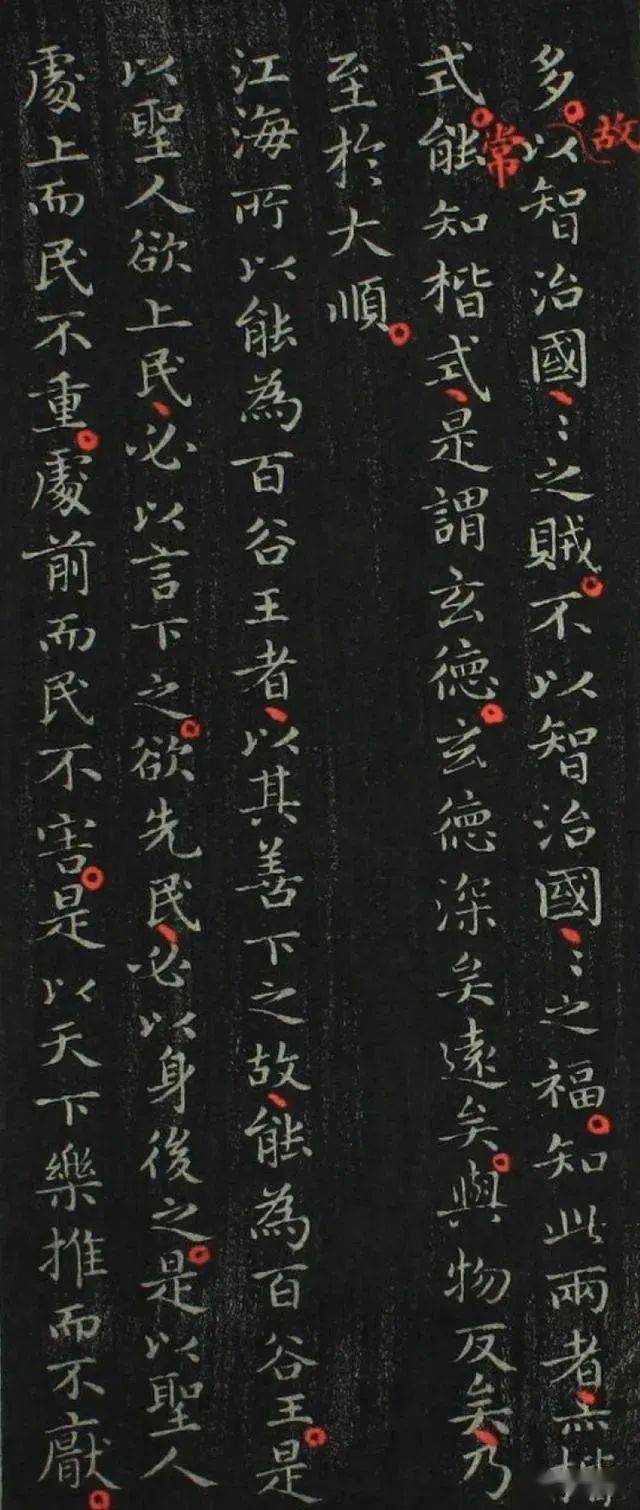 多。故以智治國、〻之賊。不以智治國、〻之福。知此兩者、亦楷
式。常能知楷式、是謂玄德。玄德深矣遠矣。與物反矣、乃
至於大順。
江海所以能為百谷王者、以其善下之故、能為百谷王。是
以聖人欲上民、必以言下之。欲先民、必以身後之。是以聖人
處上而民不重。處前而民不害。是以天下樂推而不厭。